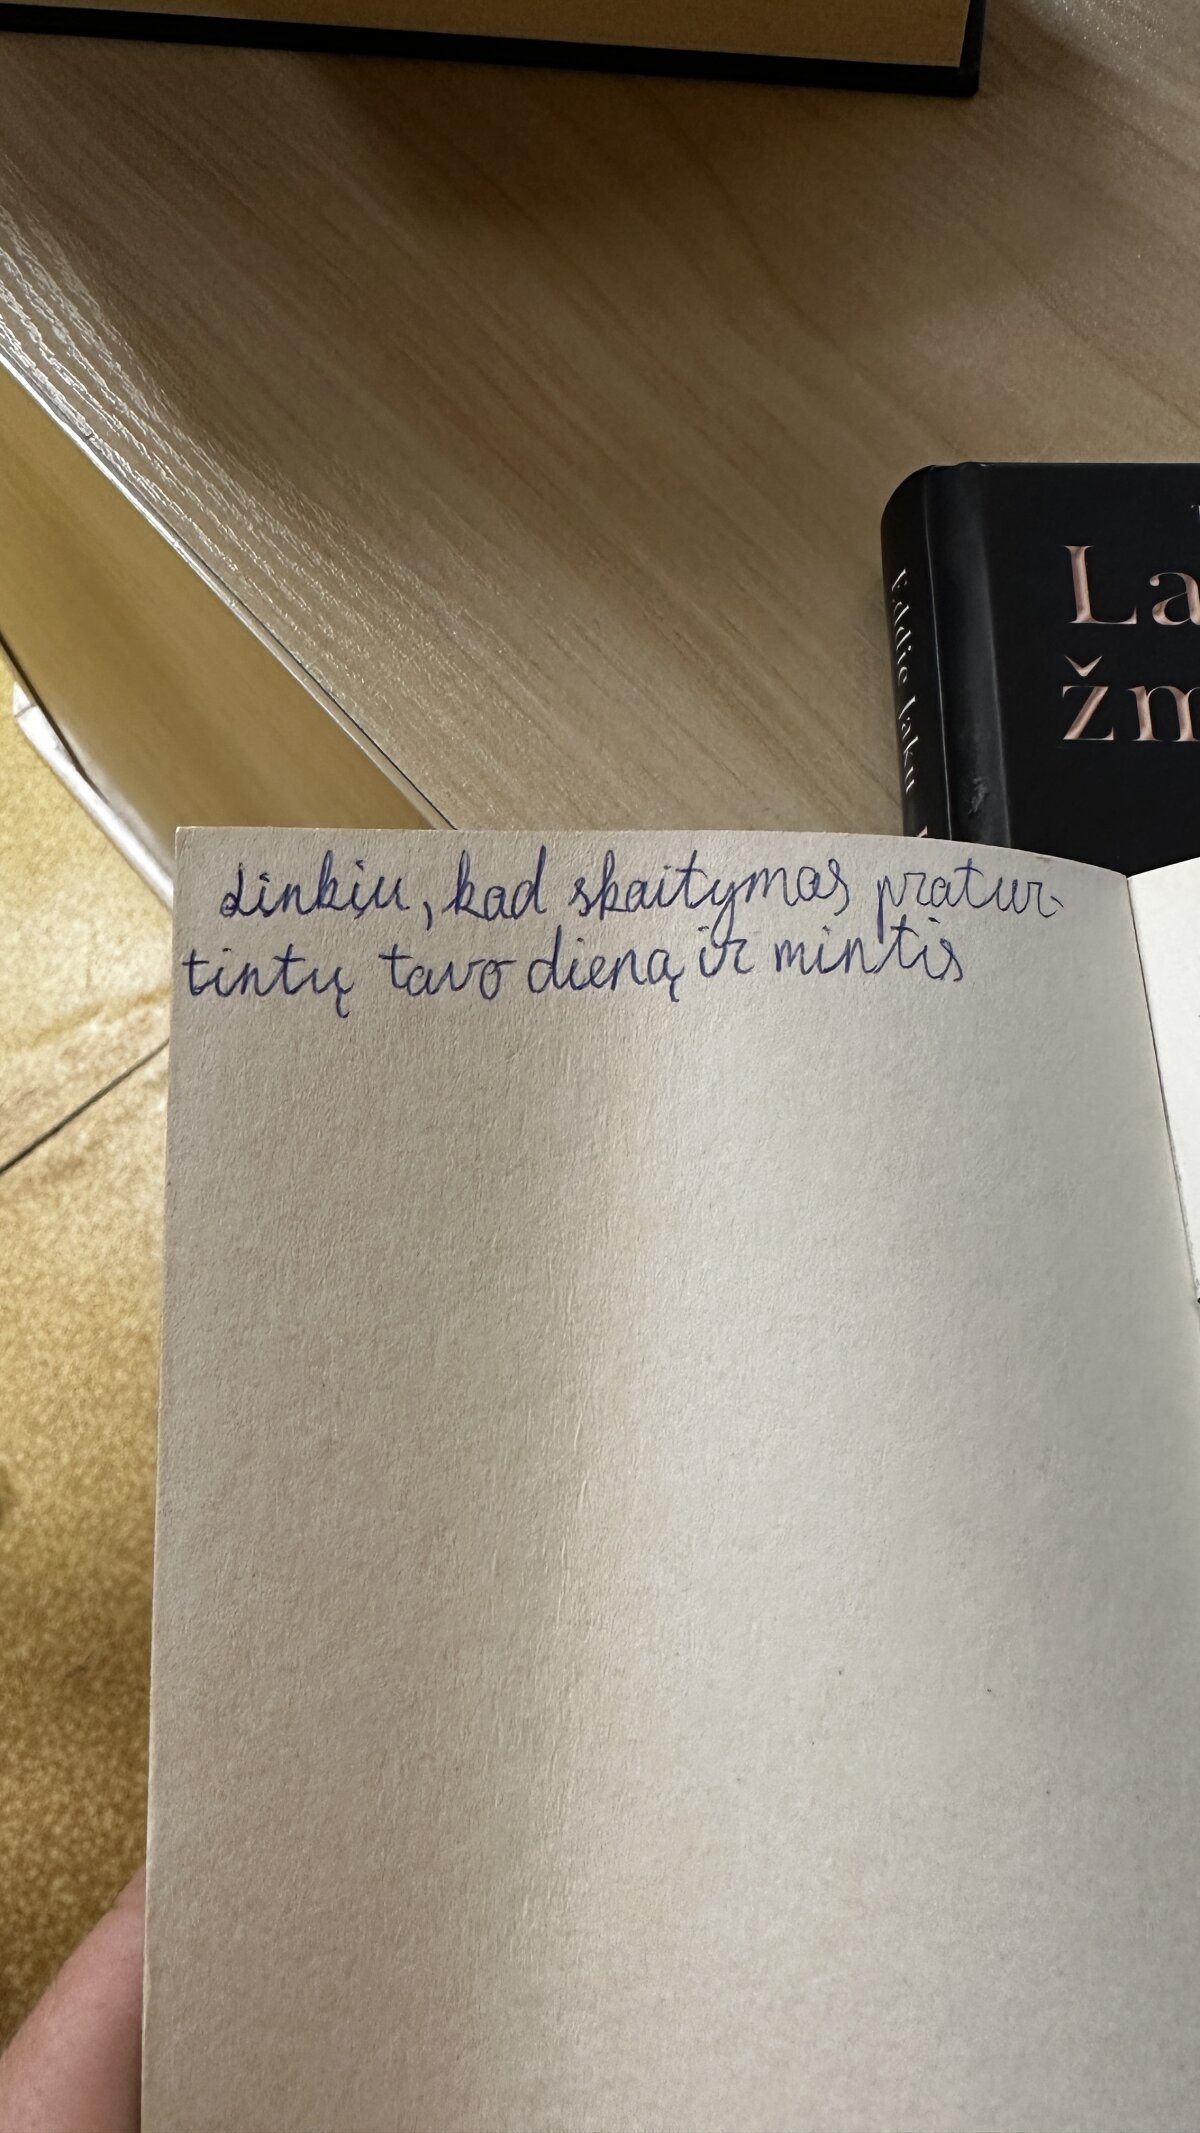 La
žm
Eddie Jaku
Linkiu, kad skaitymas pratur-
tintų tavo dieną ir mintis